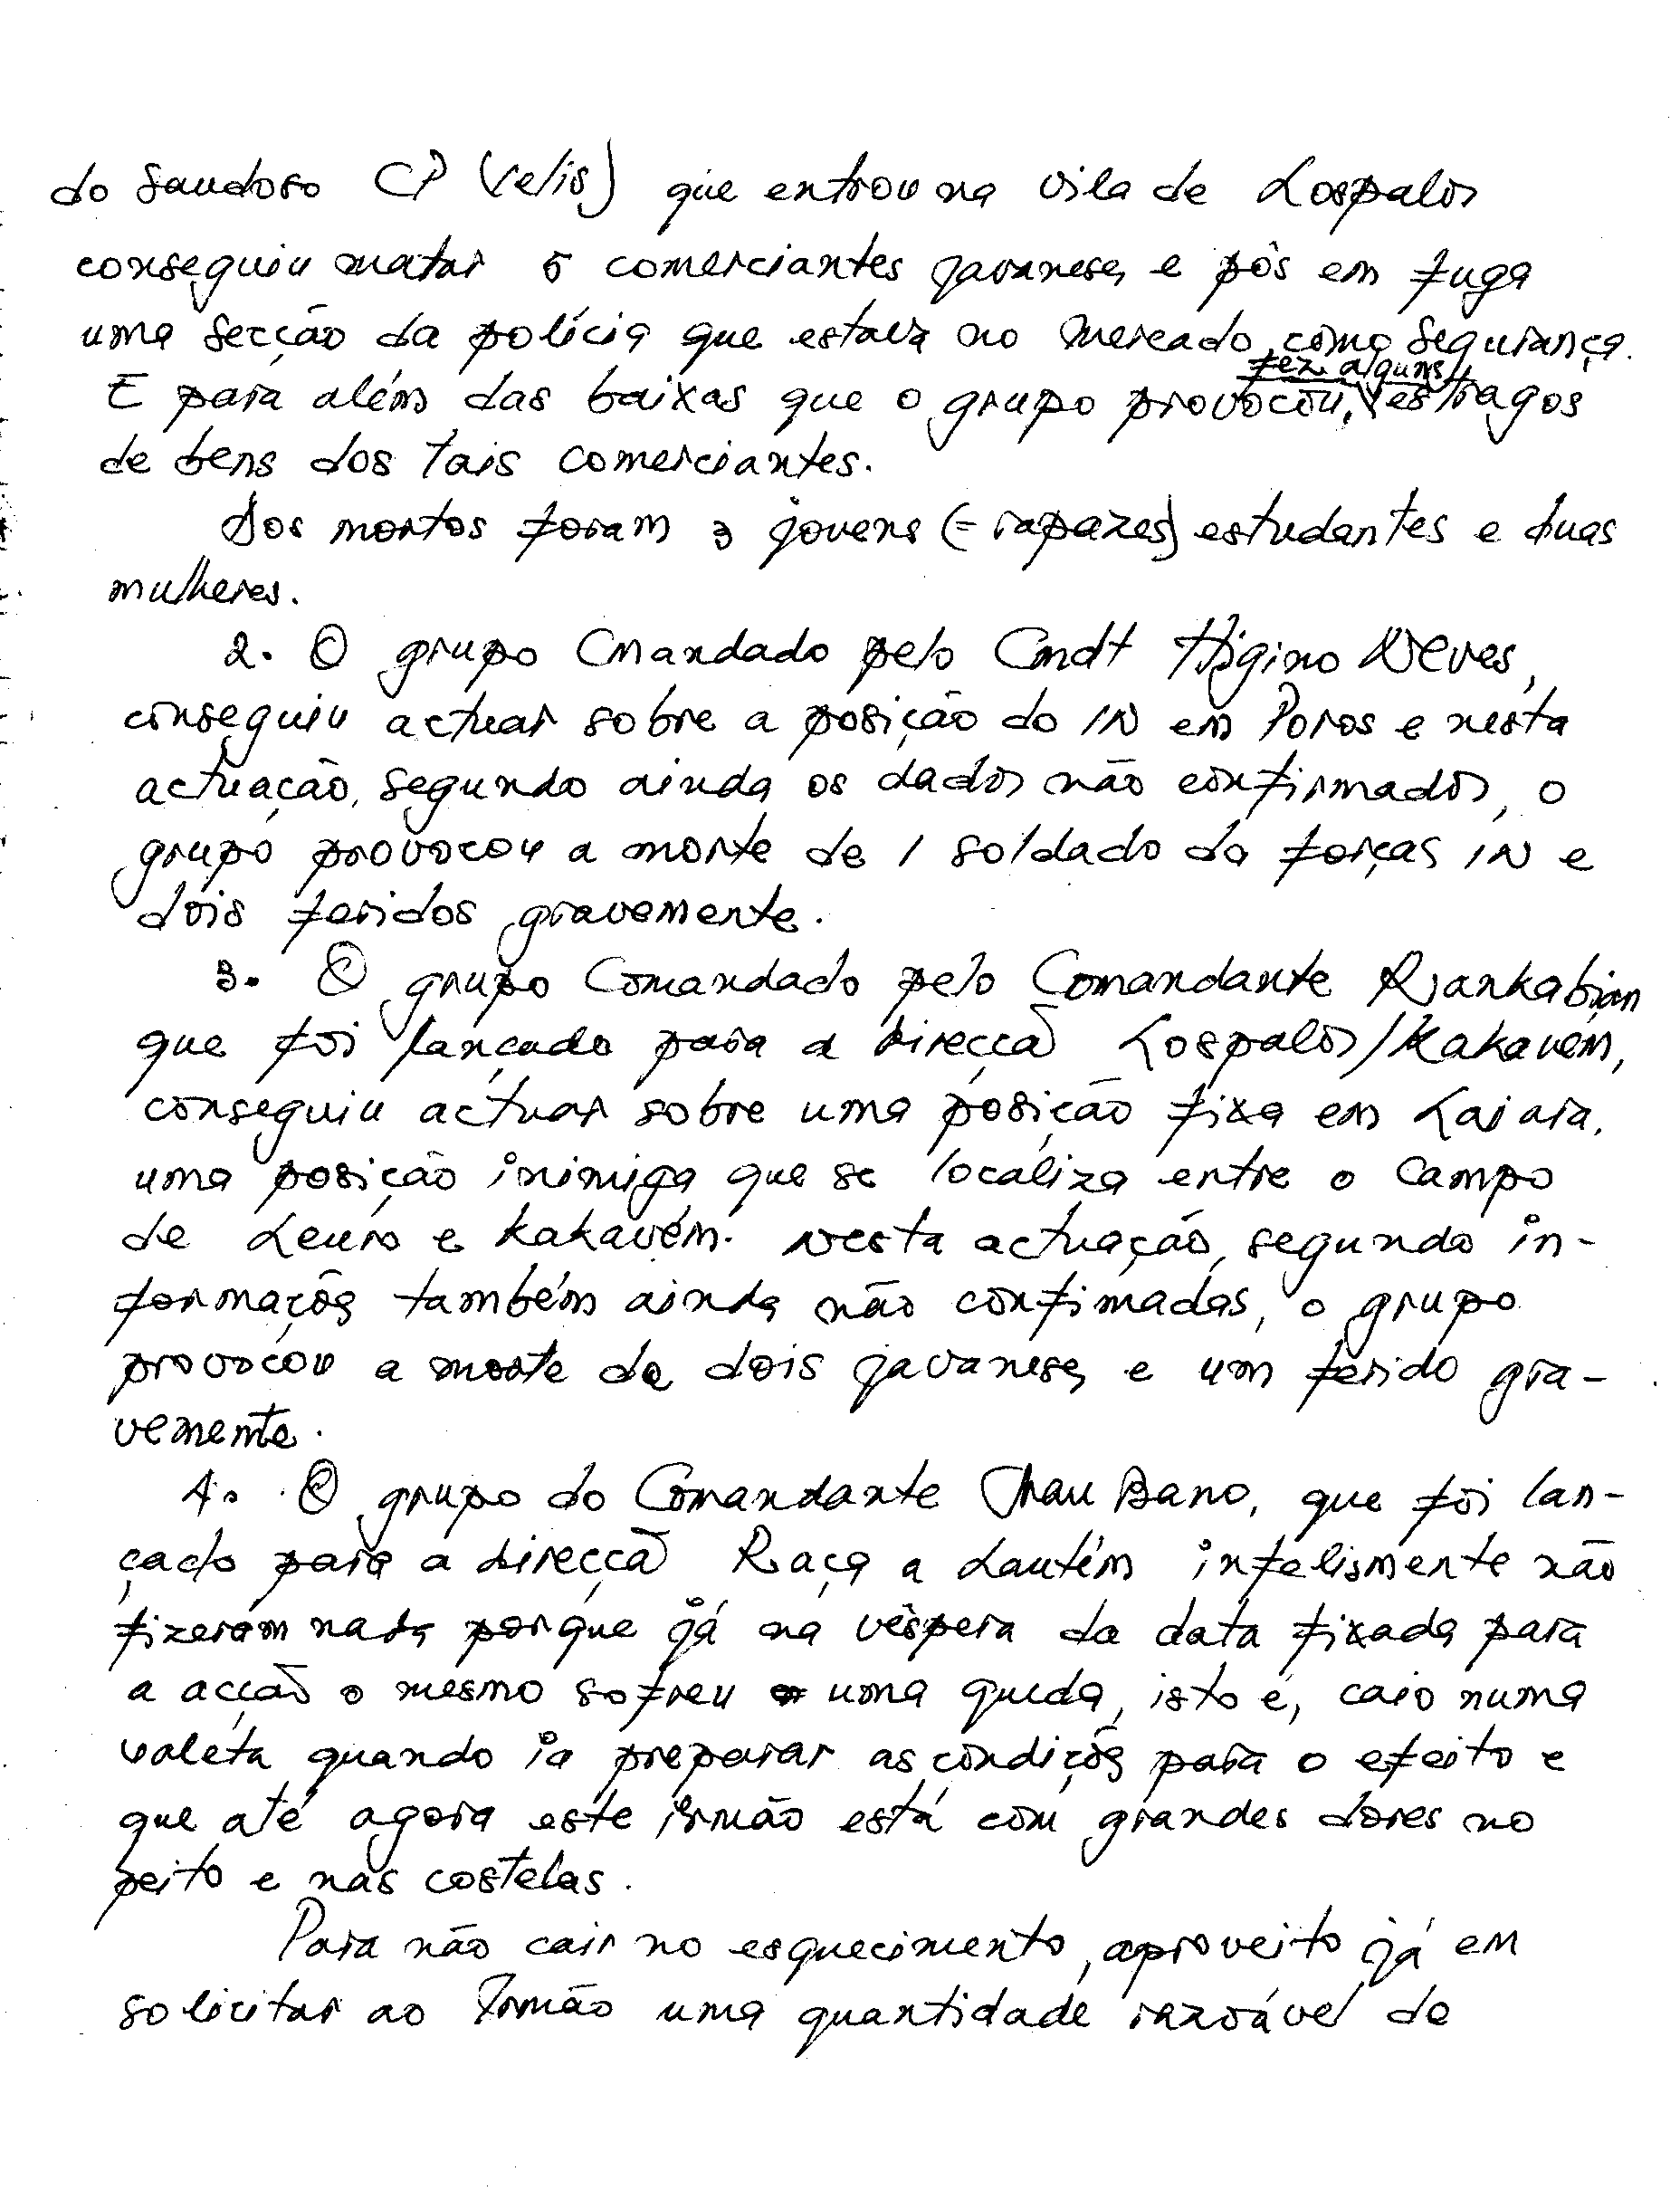 do saudoso CP (Velis) que entrou na vila de Lospalos
conseguiu matar 5 comerciantes javaneses e pôs em fuga
uma secção da polícia que estava no mercado como segurança.
E para além das baixas que o grupo provocou, fez alguns estragos
de bens dos tais comerciantes.
Dos mortos foram 3 jovens (= rapazes) estudantes e duas
mulheres.
2. O grupo Cmandado pelo Cmdt Higino Neves,
conseguiu actuar sobre a posição do IN em Poros e nesta
actuação, segundo ainda os dados não confirmados, o
grupo provocou a morte de 1 soldado da forças IN e
dois feridos gravemente.
3. O grupo Comandado pelo Comandante
que foi lançado para a direcçã Lospalos/Kakavém,
conseguiu actuar sobre uma posição fixa em Laiara,
uma posição inimiga que se localiza entre o Campo
de Leuro e Kakavém. Nesta actuação, segundo in-
formaçõs também ainda não confimadas, o grupo
provocou a morte de dois javaneses e um ferido gra-
vemente.
4. O grupo do Comandante, que foi lan-
çado para a direcçã Raça a Lautém infelismente não
fizeram nada porque já na véspera da data fixada para
a acção o mesmo sofreu uma queda, isto é, caio numa
valeta quando ia preparar as condiçõs para o efeito e
que até agora este irmão está com grandes dores no
peito e nas costelas.
Para não cair no esquecimento, aproveito já em
solicitar ao Irmão uma quantidade razoável de